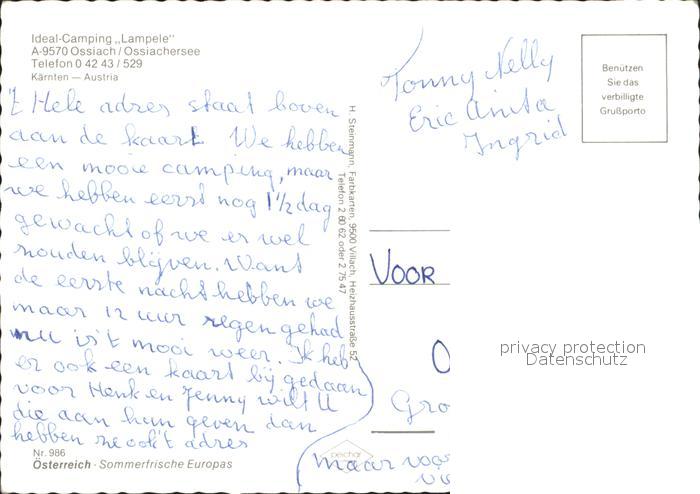 Ideal-Camping „Lampele"
A-9570 Ossiach/Ossiachersee
Telefon 0 42 43 / 529
Kärnten — Austria
't Hele adres staat boven
aan de kaart We hebben
een mooie camping, maar
we hebben eerst nog 1½ dag
gewacht of we er wel
zouden blijven. Want
de eerste nacht hebben we
maar 12 uur regen gehad
nu is't mooi weer. Ik heb
er ook een kaart bij gedaan
voor Henk en Jenny wilt U
die aan hun geven dan
hebben ze ook't adres
Nr. 986
Österreich · Sommerfrische Europas
H. Steinmann, Farbkarten, 9500 Villach, Heizhausstraße 52
Telefon 2 60 62 oder 2 75 47
Tonny Nelly
Eric Anita
Ingrid
Benützen
Sie das
verbilligte
Grußporto
VOOR
O
Gro
maar voor
privacy protection
Datenschutz